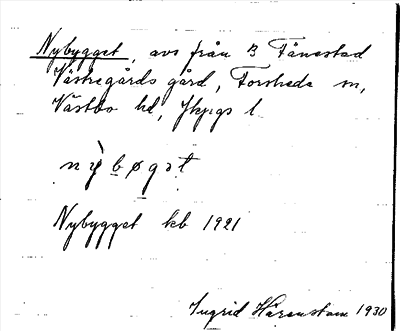 Nybygget, avs från B Tånestad
Västregårds gård, Forsheda sn,
Västbo hd, Jkpgs l.
nỳbøgət
Nybygget kb 1921
Ingrid Härenstam 1930